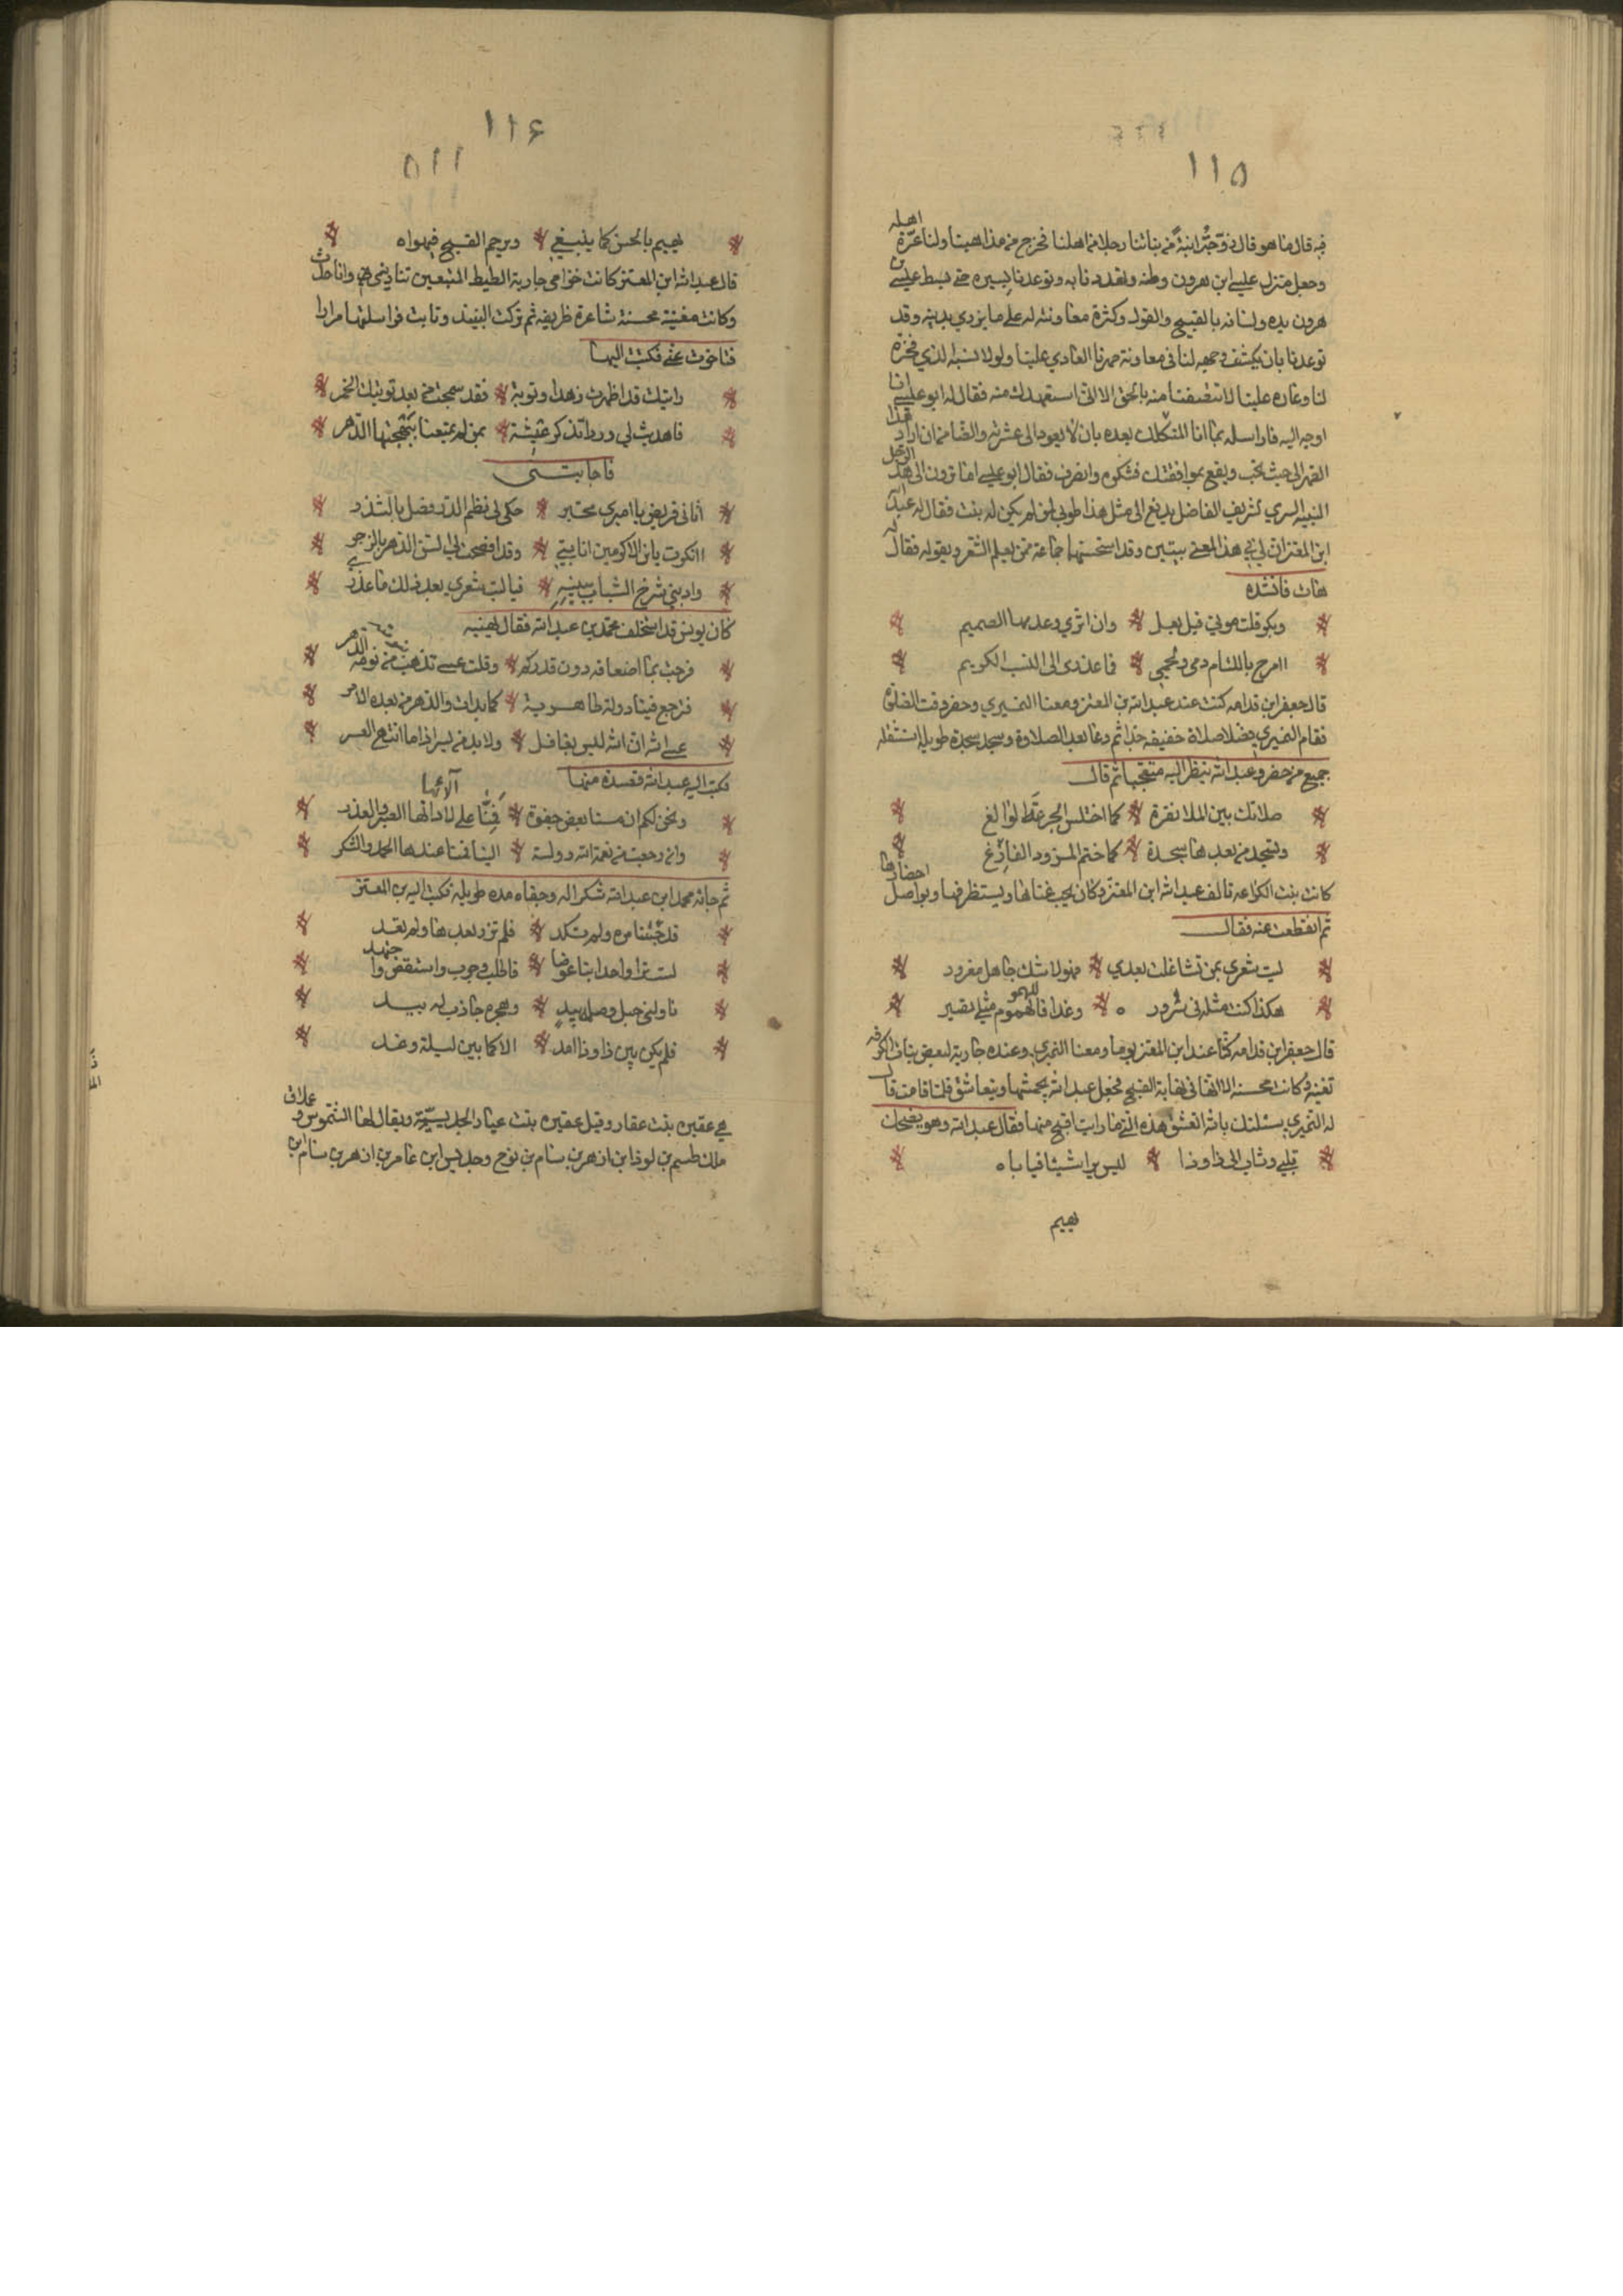 ١١٥
فيه قال ما هو قال زوجت ابنة من بناتنا رجلا من اهلنا فخرج من مذاهبنا ولنا عزة اهله
وجعل منزل عليسى ابن هرون وطنه وتهددنا به وتوعدنا بسيره حتى بسط عليسى بن
هرون يده ولسانه بالقبيح والقول وكثرة معاونته له على ما يزري بدينه وقد
توعدنا بان يكشف وجهه لنا في معاونة صهرنا العادي علينا ولولا نسبه الذي فخره
لنا وعاره علينا لانتصفنا منه بالحق الا انى استعهدك منه فقال له ابو عليسى انا
اوجه اليه فاراسله بما انا المتكلك بعده بان لا يعود الى عشرته والضامن ان اراد هذا
الصهر الى حيث يحب ويقع بموافقتك فشكره وانصرف فقال ابو عليسى اما ترون الى هذا الرجل
النبيه السري الشريف الفاضل يدفع الى مثل هذا طوبى لمن لم يكن له بنت فقال له عبد الله
ابن المعتز ان لي في هذا المعنى بيتين وقد استحسنهما جماعة ممن يعلم الشعر ويقوله فقال له
هات فانشده
وبكر قلت موتي قبل بعل * وان اثري وعد من الصميم
اامزج باللئام دمي ولحمي * فما عذري الى النسب الكريم
قال جعفر ابن قدامه كنت عند عبد الله بن المعتز ومعنا النميري وحضر وقت الصلوة
فقام النميري فصلا صلاة خفيفه جدا ثم دعا بعد الصلاوة وسجد سجدة طويله استثقله
جميع من حضر وعبد الله ينظر اليه متعجبا ثم قال
صلاتك بين الملا نقرة * كما اختلس الجرعة الوالغ
وتسجد من بعدها سجدة * كما ختم المزود الفارغ
كانت بنت الكراعه تالف عبد الله ابن المعتز وكان يحب غناها ويستظرفها ويواصل احضارها
ثم انقطعت عنه فقال
ليت شعري بمن تشاغلت بعدي * فهو لا شك جاهل مغرور
هكذا كنت مثله في سرور * وغدا في الهموم مثلي يصير
قال جعفر ابن قدامه كنا عند ابن المعتز يوما ومعنا النميري وعنده جارية لبعض بنات
تغنيه وكانت محسنه الا انها في نهاية القبح فجعل عبد الله يجمشها ويتعاشق فلما قامت قال
له النميري يسئلتك بالله اتعشق هذه التي ما رايت اقبح منها فقال عبد الله وهو يضحك
قلبي وثاب الى ذا وذا * ليس يرا شيئا فياباه
يهيم
١١۶
١١٥
يهيم بالحسن كما ينبغي * ويرحم القبيح فيهواه
قال عبد الله ابن المعتز كانت خزامى جارية الطيط المتبعين تناديني وانا حدث
وكانت مغنية محسنة شاعرة ظريفه ثم تركت النبيذ وتابت فراسلتها مرارا
فتاخرت عني فكتبت اليها
رايتك قد اظهرت زهدا وتوبة * فقد سمجت من بعد توبتك الخمر
فاهديت لي وردا تذكر عيشة * بمن لم يمتعنا ببهجتها الدهر
فاجابتني
اتانى قريض يا اميري محبر * حكى لي نظم الدر فصل بالشذر
اانكرت يا بن الاكرمين انابتي * وقد افصحت لي السن الدهر بالزجر
واذبني شرخ الشباب ببينه * فيا ليت شعري بعد ذلك ما عذري
كان يونس قد استخلف محمد بن عبد الله فقال يهنيه
فرحت بما اضعافه دون قدركم * وقلت عسى قد هب من نومه الدهر
فترجع فينا دولة طاهرية * كما بدات والامر من بعده الامر
عسى الله ان الله ليس بغافل * ولا بد من يسر اذا ما انتهى العسر
فكتب اليه عبد الله قصيدة منها
ونحن لكم ان مسنا بعض جفوة * فمنا على لاوائها الصبر والعذر
وان رجعت من نعمة الله دولة * الينا فمنا عندها الحمد والشكر
ثم جائه محمد ابن عبد الله شاكرا له وجفاه مده طويله فكتب اليه بن المعتز
قد جئتنا مره ولم تكد * فلم تزر بعدها ولم تعد
لست ترا واحدا بنا عوضا * فاطلب وجرب واستقص واجتهد
ناولني حبل وصله بيد * وهجره جاذب له بيد
فلم يكن بين ذا وذا امد * الا كما بين ليلة وغد
هي عقيره بنت عقار وقيل عقيره بنت عباد الجديسيه ويقال لها الشموس و
ملك طسم بن لوذ ابن ازهر بن سام بن نوح وجديس ابن عامر بن ازهر بن سام ابن